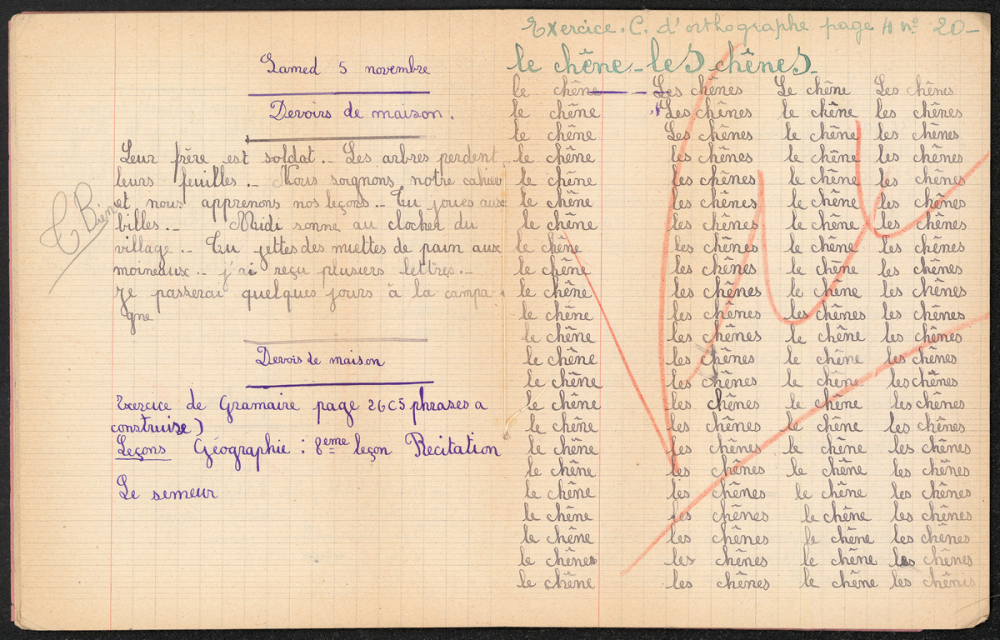 Samedi 5 novembre
Devoirs de maison.
Leur frère est soldat. Les arbres perdent
leurs feuilles. Nous soignons notre cahier
et nous apprenons nos leçons. Tu joues aux
billes. Midi sonne au clocher du
village. Tu jettes des miettes de pain aux
moineaux. j'ai reçu plusiers lettres.
Je passerai quelques jours à la campa
gne
T Bien
Devois de maison
Exercice de Gramaire page 26 C 5 phrases a
construire)
Leçons Géographie : 8eme leçon Récitation
Le semeur
Exercice. C. d'orthographe page 4 nº 20
le chêne - les chênes.
le chêne Les chênes Le chêne Les chêns
le chêne Les chênes le chêne les chênes
le chêne Les chênes le chêne les chênes
le chêne les chênes le chêne les chênes
le chêne les chênes le chêne les chênes
le chêne les chênes le chêne les chênes
le chêne les chênes le chêne les chênes
le chêne les chênes le chêne les chênes
le chêne les chênes le chêne les chênes
le chêne les chênes le chêne les chênes
le chêne les chênes les chênes les chênes
le chêne les chênes le chêne les chênes
le chêne les chênes le chêne les chênes
le chêne les chênes le chêne les chênes
le chêne les chênes le chêne les chênes
le chêne les chênes le chêne les chênes
le chêne les chênes le chêne les chênes
le chêne les chênes le chêne les chênes
le chêne les chênes le chêne les chênes
le chêne les chênes le chêne les chênes
le chêne les chênes le chêne les chênes
le chêne les chênes le chêne les chênes
le chêne les chênes le chêne les chênes